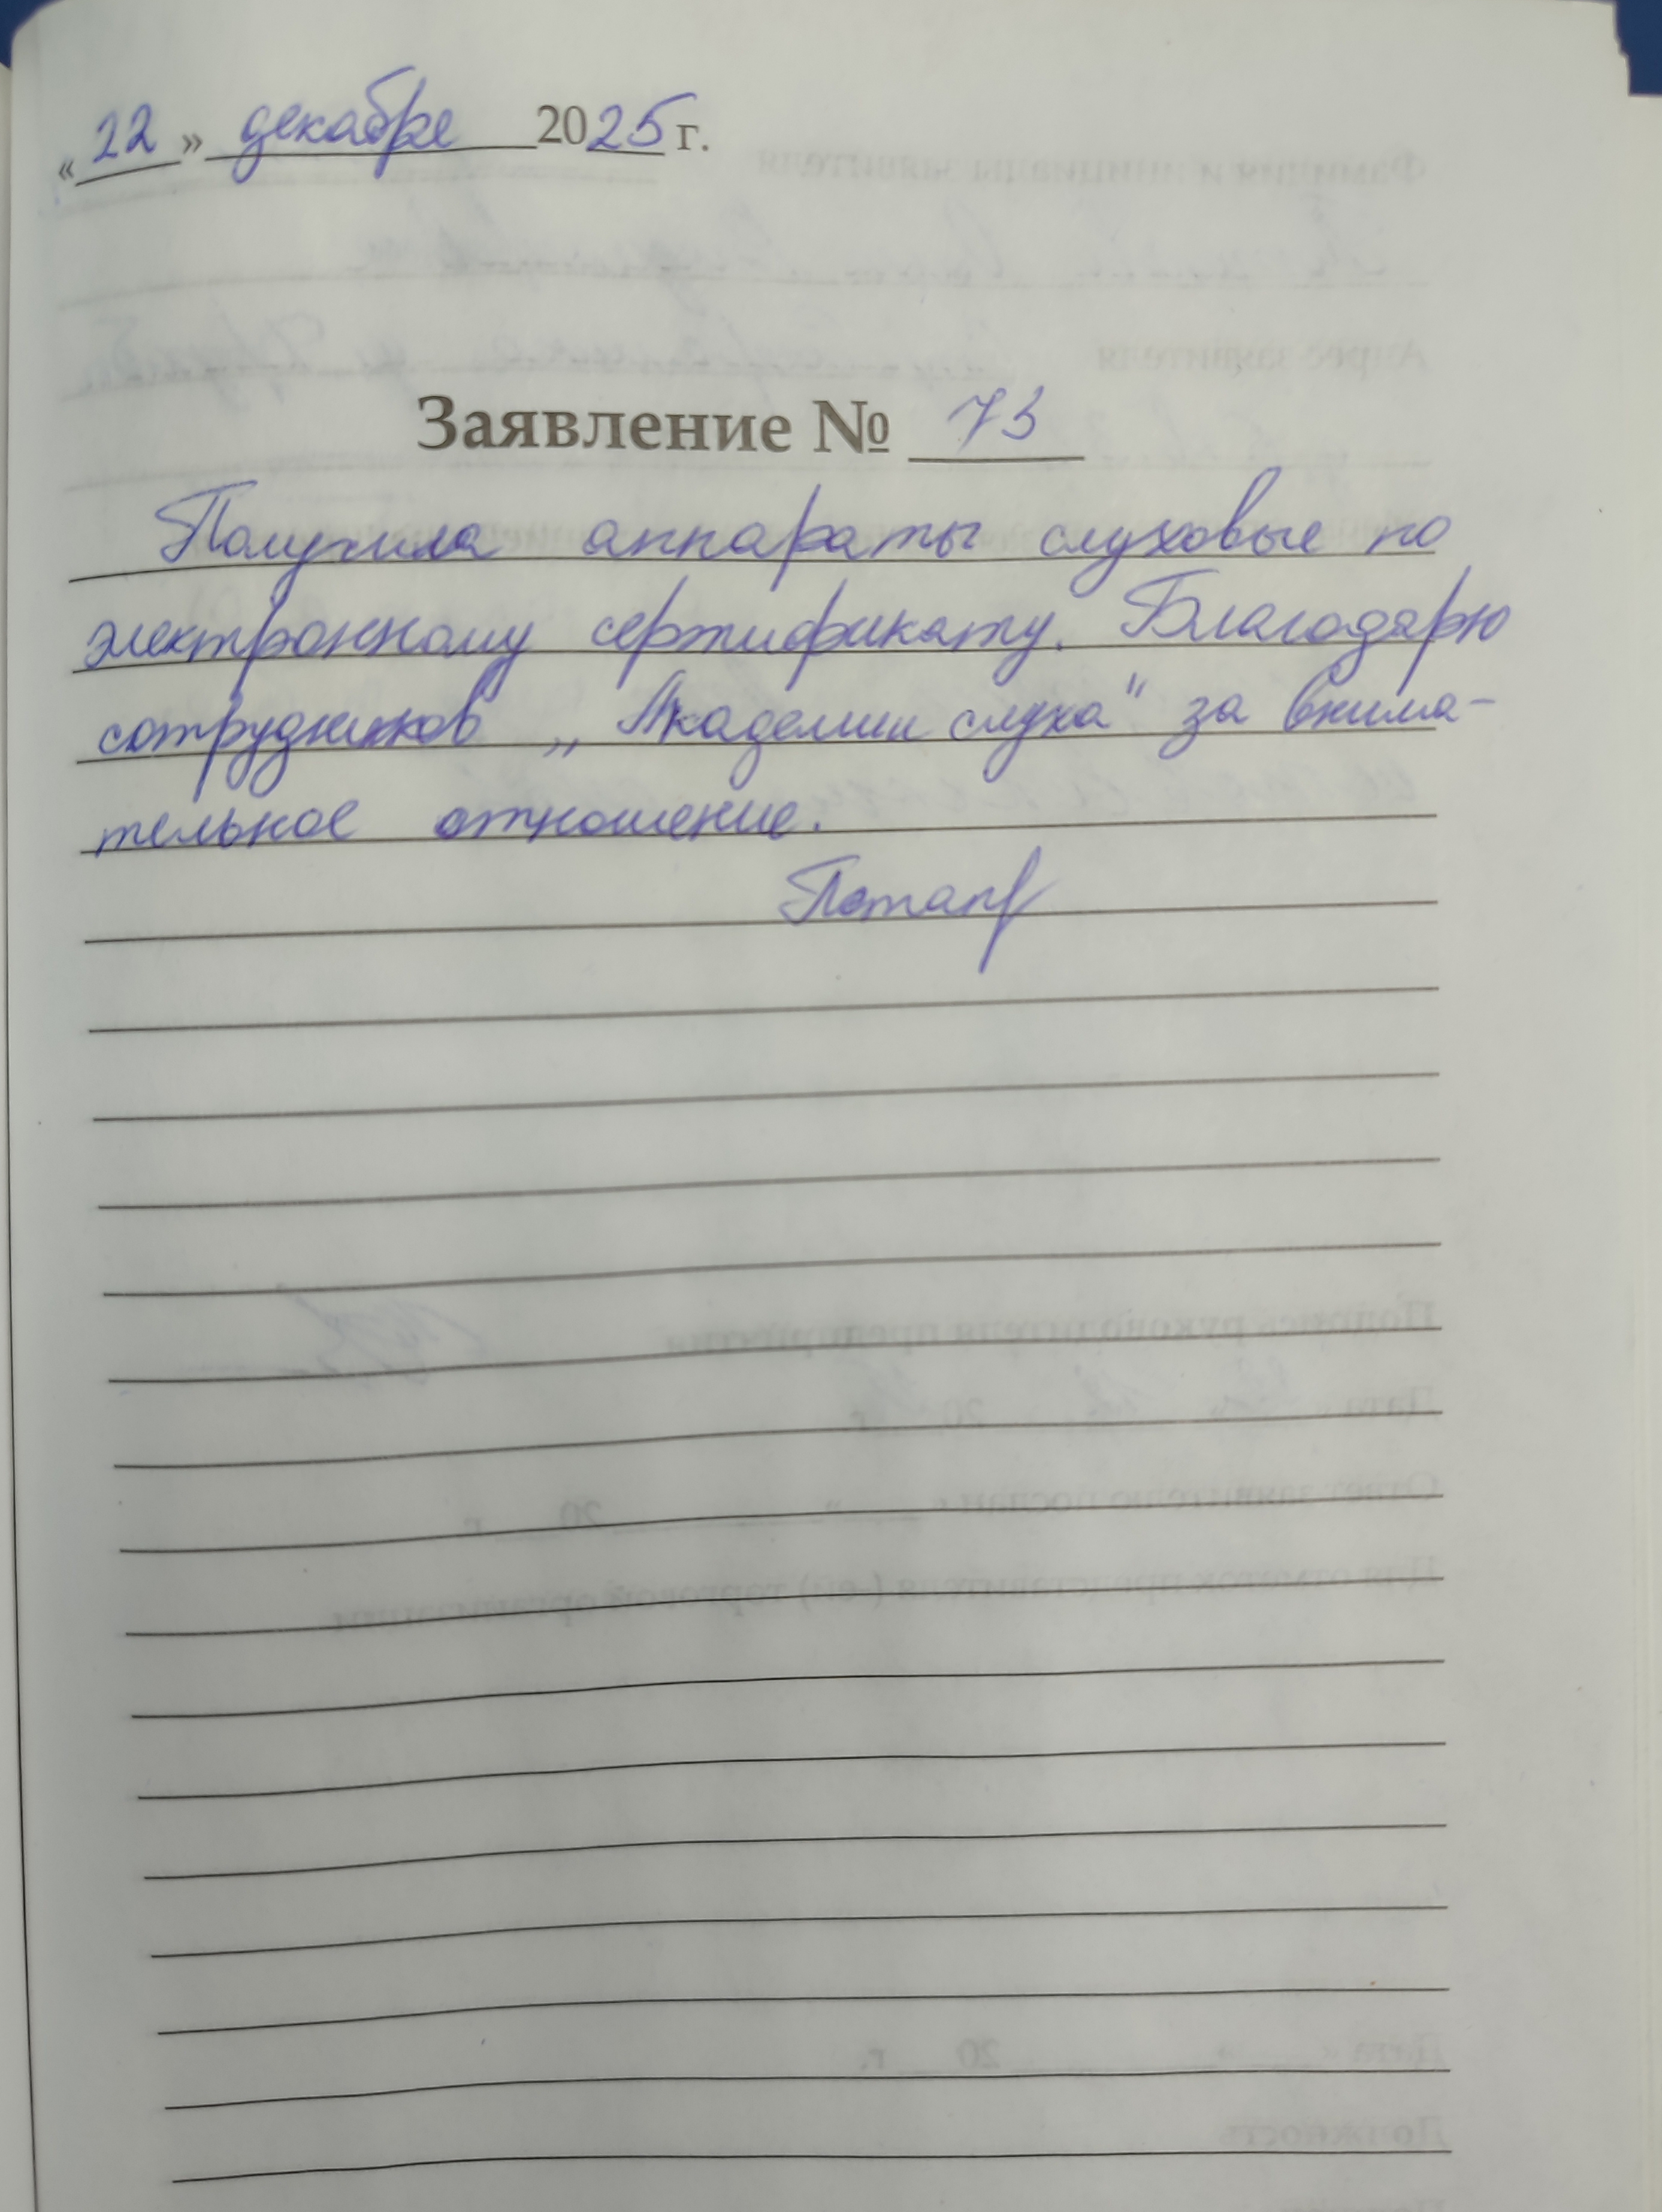 «22» декабре 2025 г.
Заявление № 73
Получила аппараты слуховые по
электронному сертификату. Благодарю
сотрудников „Академии слуха" за внима-
тельное отношение.